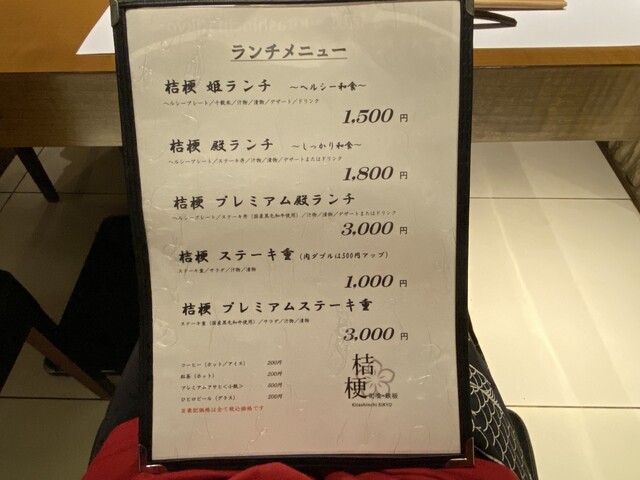 ランチメニュー
桔梗 姫ランチ ～ヘルシー和食～
ヘルシープレート／十穀米／汁物／漬物／デザート／ドリンク
1,500 円
桔梗 殿ランチ ～しっかり和食～
ヘルシープレート／ステーキ丼／汁物／漬物／デザートまたはドリンク
1,800 円
桔梗 プレミアム殿ランチ
ヘルシープレート／ステーキ丼（国産黒毛和牛使用）／汁物／漬物／デザートまたはドリンク
3,000 円
桔梗 ステーキ重（肉ダブルは500円アップ）
ステーキ重／サラダ／汁物／漬物
1,000 円
桔梗 プレミアムステーキ重
ステーキ重（国産黒毛和牛使用）／サラダ／汁物／漬物
3,000 円
コーヒー（ホット／アイス） 200円
紅茶（ホット） 200円
プレミアムアサヒ＜小瓶＞ 500円
ひとロビール（グラス） 200円
※表記価格は全て税込価格です
桔梗
Kitashinchi KIKYO